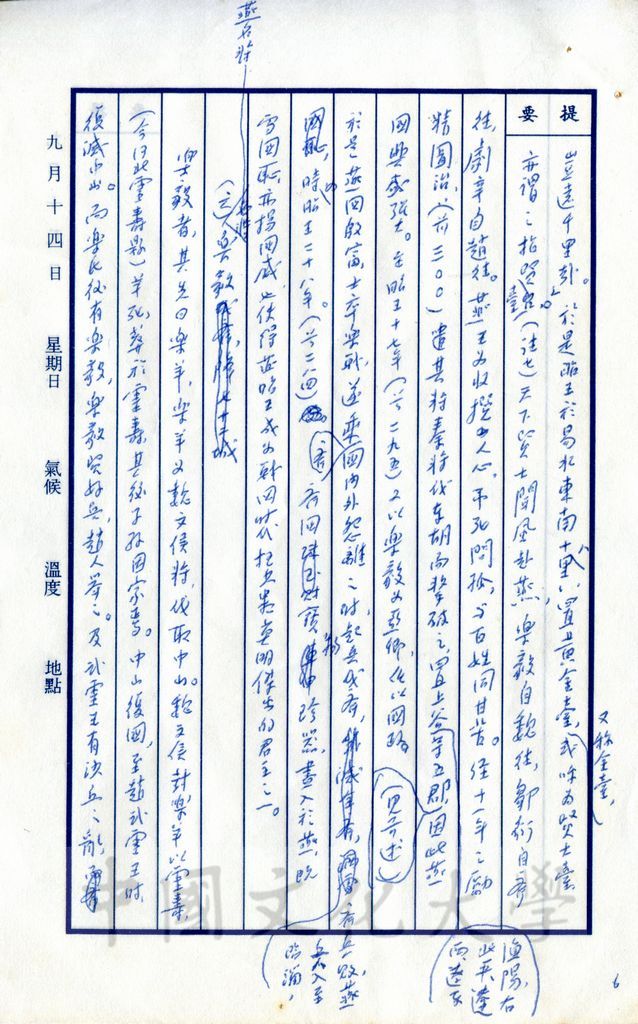 提要
豈遠千里哉。於是昭王於易水東南十八里,置黃金臺,或呼為賢士臺
又稱金臺,
亦謂之招賢臺。(註七)天下賢士聞風赴燕,樂毅自魏往,鄒衍自齊
往,劇辛自趙往。燕王為收攬人心,弔死問孤,與百姓同甘苦。經十一年之勵
精圖治,(前三〇〇)遣其將秦將伐東胡而擊破之,置上谷等五郡,因此燕
漁陽,右北平,遼西,遼東
國興盛強大。在昭王十七年(前二九五)又以樂毅為亞卿,任以國政
(見前述)
於是燕國殷富,士卒樂戰,遂乘國內外怨離之時,起兵伐齊,齊兵敗,燕
兵入至臨淄,
時昭王二十八年。(前二八四)齊國珠玉財寶珍器,盡入於燕,既
雪國恥,亦揚國威,也使得燕昭王成為戰國時代
君主之一。
燕名將
(二)名將樂毅
樂毅者,其先曰樂羊,樂羊為魏文侯將,伐取中山。魏文侯封樂羊以靈壽
(今河北靈壽縣)羊死,葬於靈壽,其後子孫因家焉。中山復國,至趙武靈王時
復滅中山。而樂氏後有樂毅,樂毅賢好兵,趙人舉之。及武靈王有沙丘之亂,
九月十四日 星期日 氣候 溫度 地點
6
中國文化大學